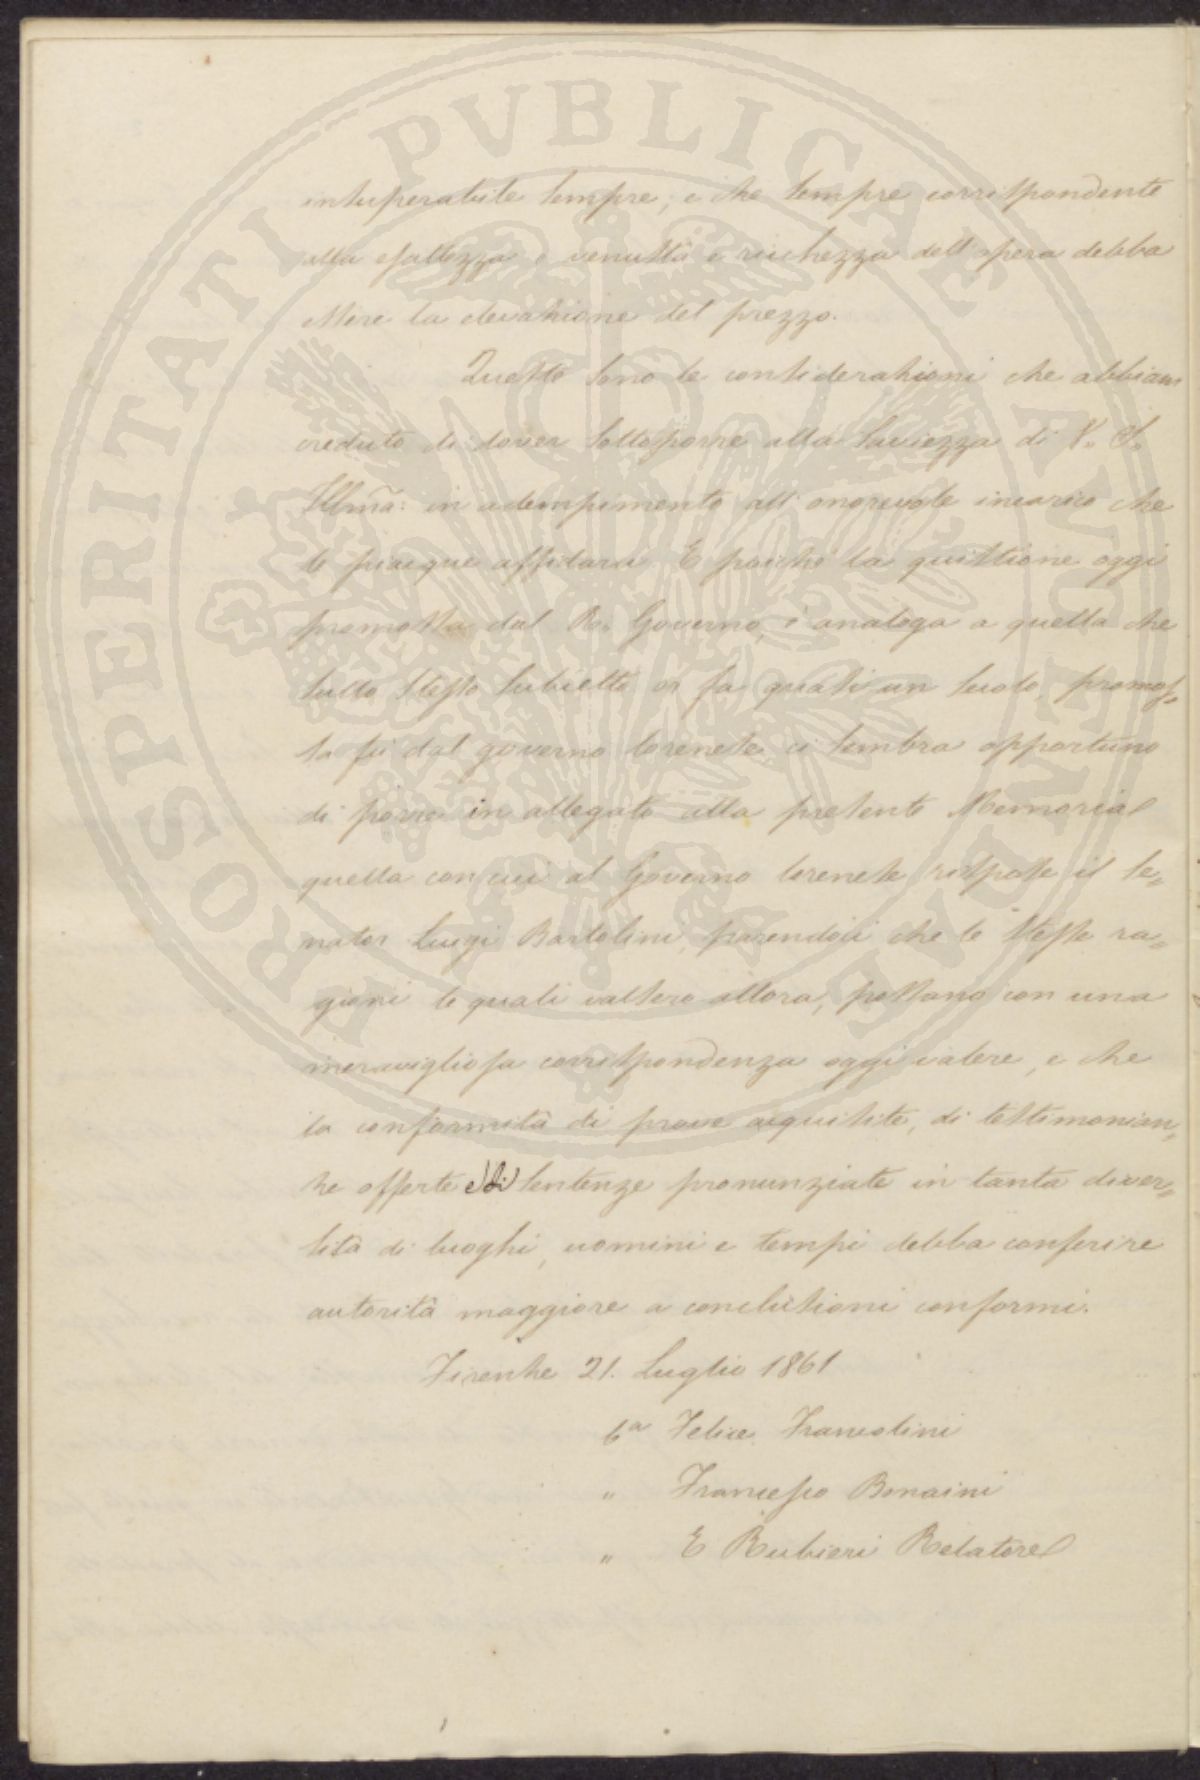 insuperabile sempre, e che sempre corrispondente
alla esattezza e venustà e ricchezza dell'opera debba
essere la elevazione del prezzo.
Queste sono le considerazioni che abbiam
creduto di dover sottoporre alla saviezza di V. S.
Illma: in adempimento all'onorevole incarico che
le piacque affidarci. E poichè la quistione oggi
promossa dal R. Governo, è analoga a quella che
sullo stesso subietto or fa quasi un secolo, promos,
sa fù dal governo lorenese, ci sembra opportuno
di porre in allegato alla presente Memoria
quella con cui al Governo lorenese rispose il se=
nator Luigi Bartolini, parendoci che le stesse ra=
gioni le quali valsero allora, possano con una
meravigliosa corrispondenza oggi valere, e che
la conformità di prove acquisite, di testimonian=
ze offerte e di sentenze pronunziate in tanta diver=
sità di luoghi, uomini e tempi debba conferire
autorità maggiore a conclusioni conformi.
Firenze 21. Luglio 1861
Felice Francolini
" Francesco Bonaini
" E Rubieri Relatore
PROSPERITATI PVBLICAE AVGENDAE